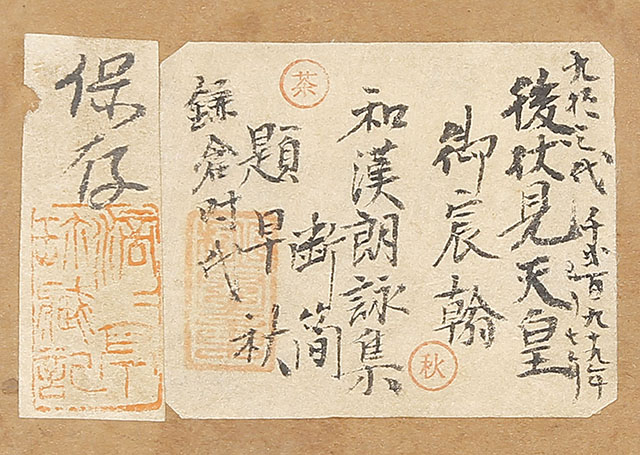 九拾三代
千弐百九十九年
後伏見天皇
御宸翰
和漢朗詠集
断簡
題早秋
鎌倉時代
茶
秋
保存